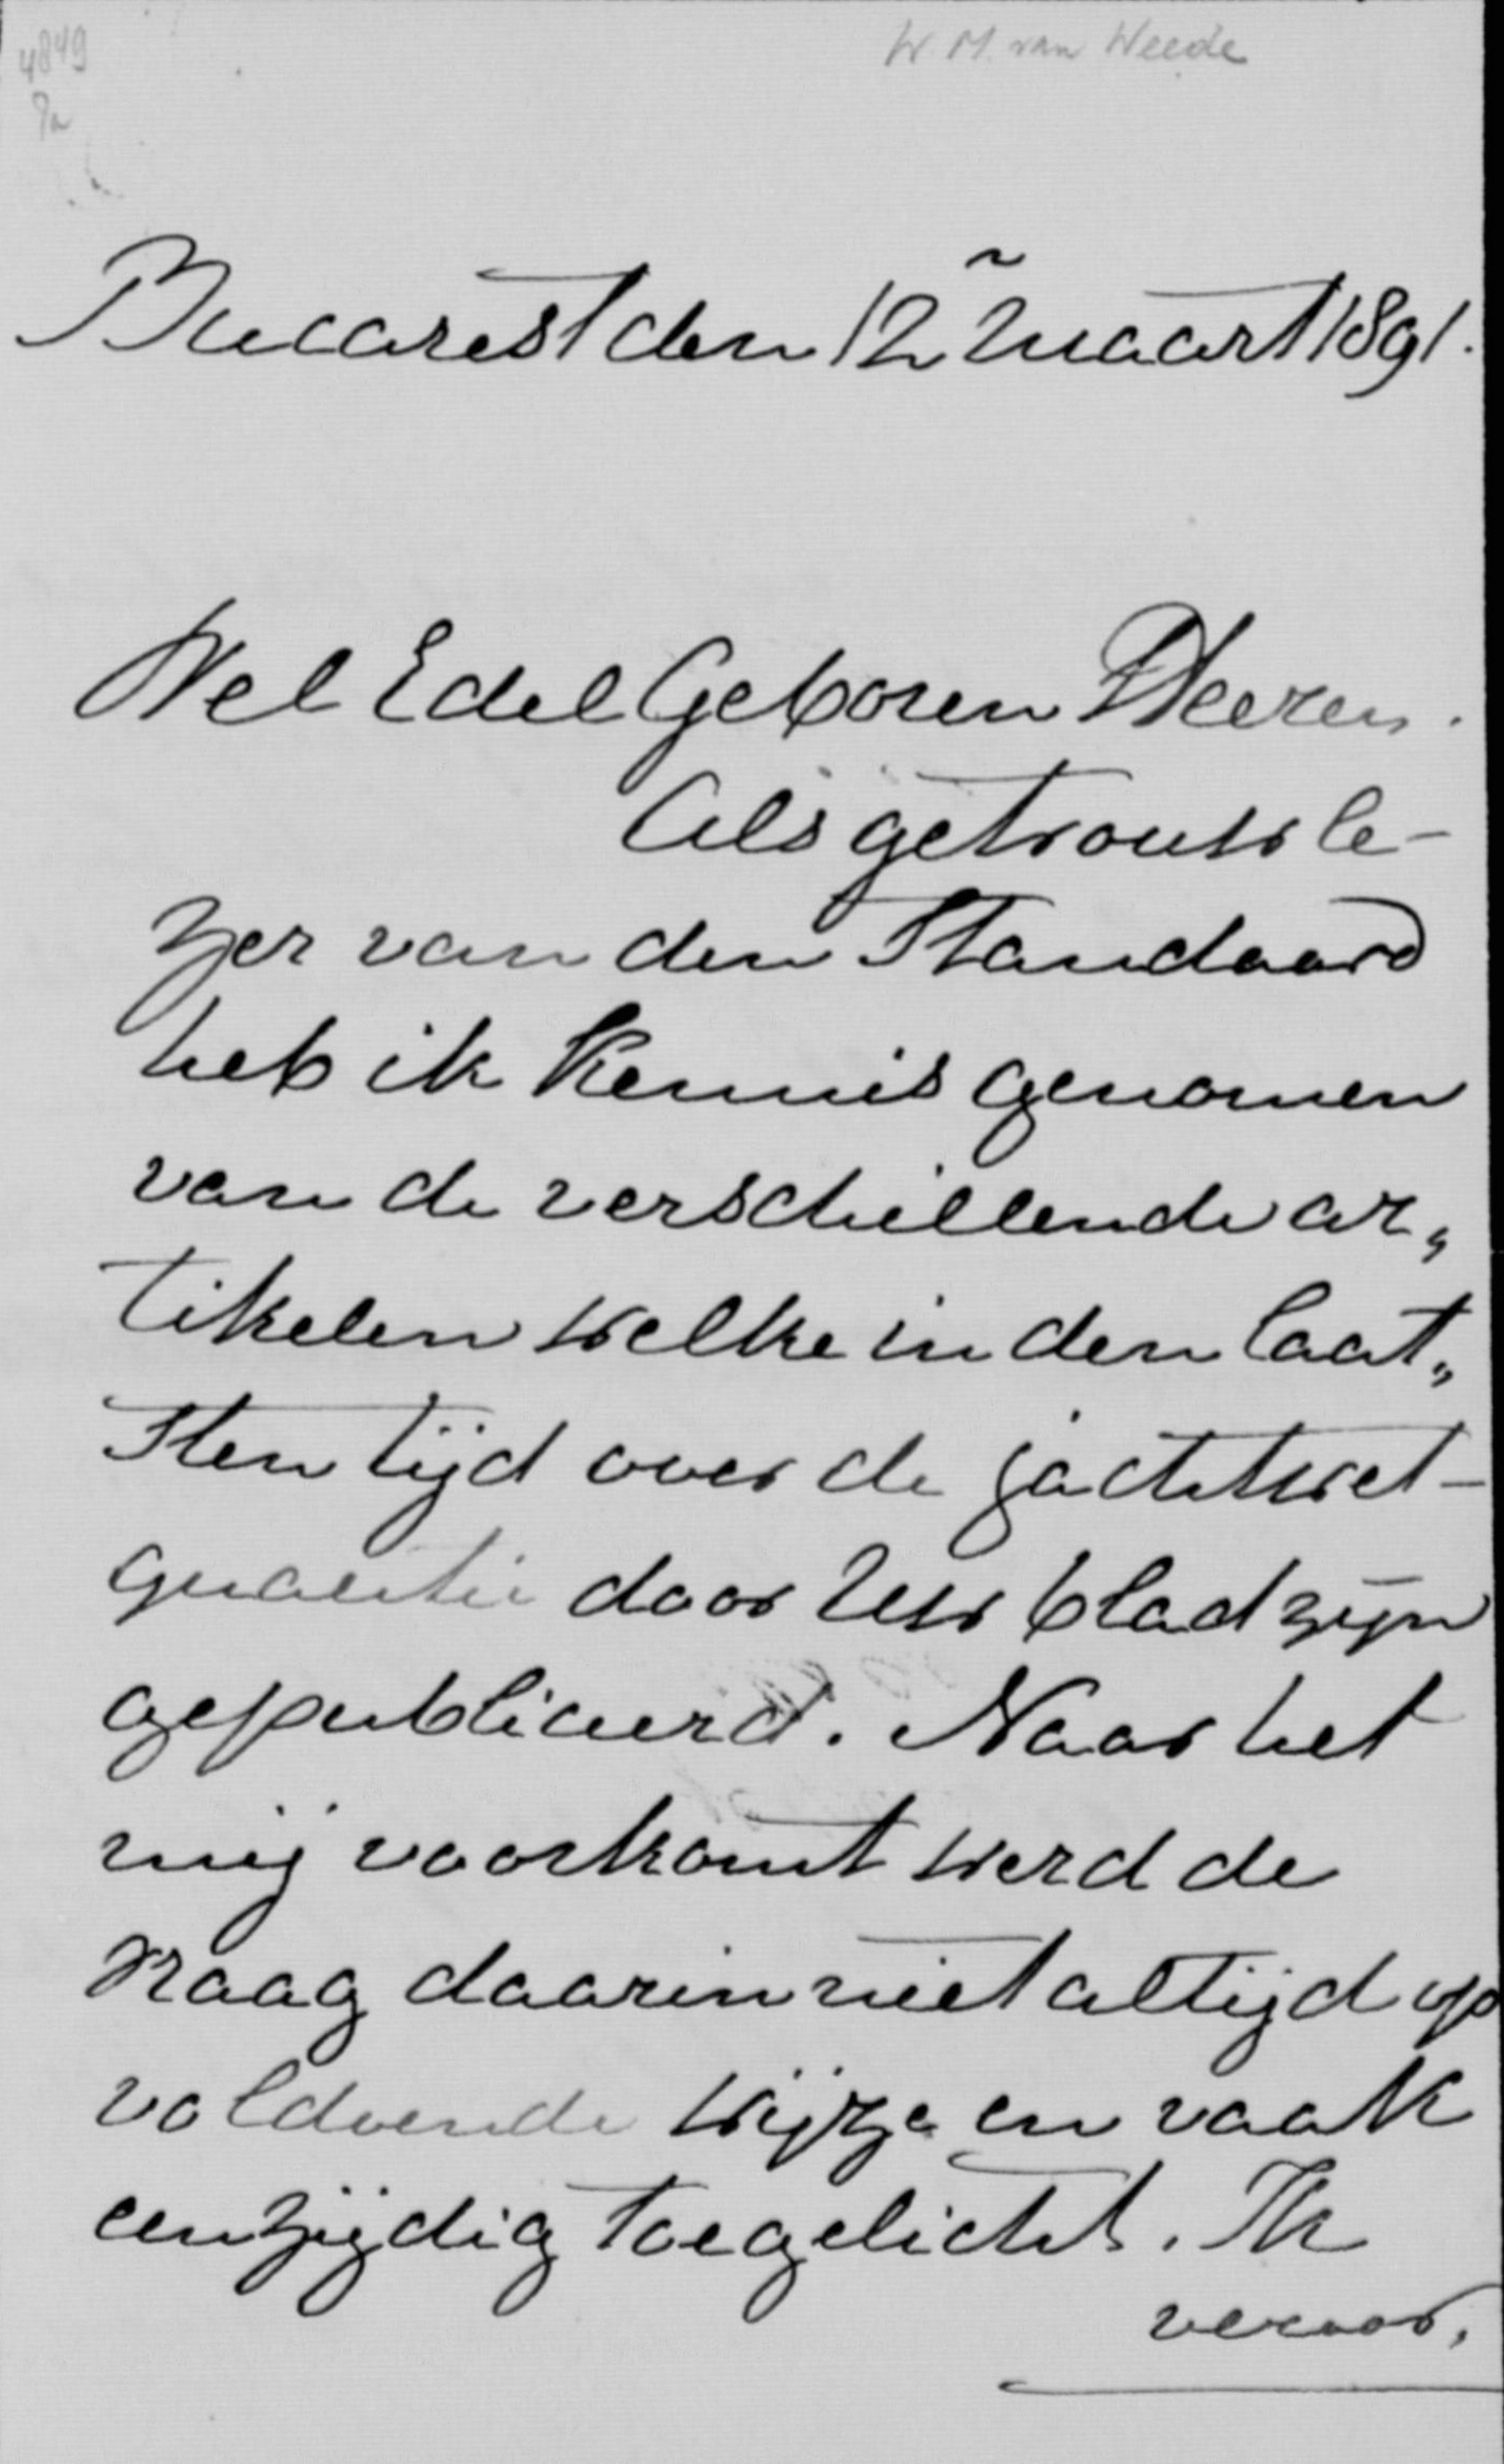 4849
W. M. van Weede
Bucarest den 12 Maart 1891.
Wel Edel Geboren Heeren.
Als getrouw le-
zer van den Standaard
heb ik kennis genomen
van de verschillende ar„
tikelen welke in den laat„
sten tijd over de jachtwet-
quaestie door Uw blad zijn
gepubliceerd. Naar het
mij voorkomt werd de
vraag daarin niet altijd op
voldoende wijze en vaak
eenzijdig toegelicht. Ik
veroor,